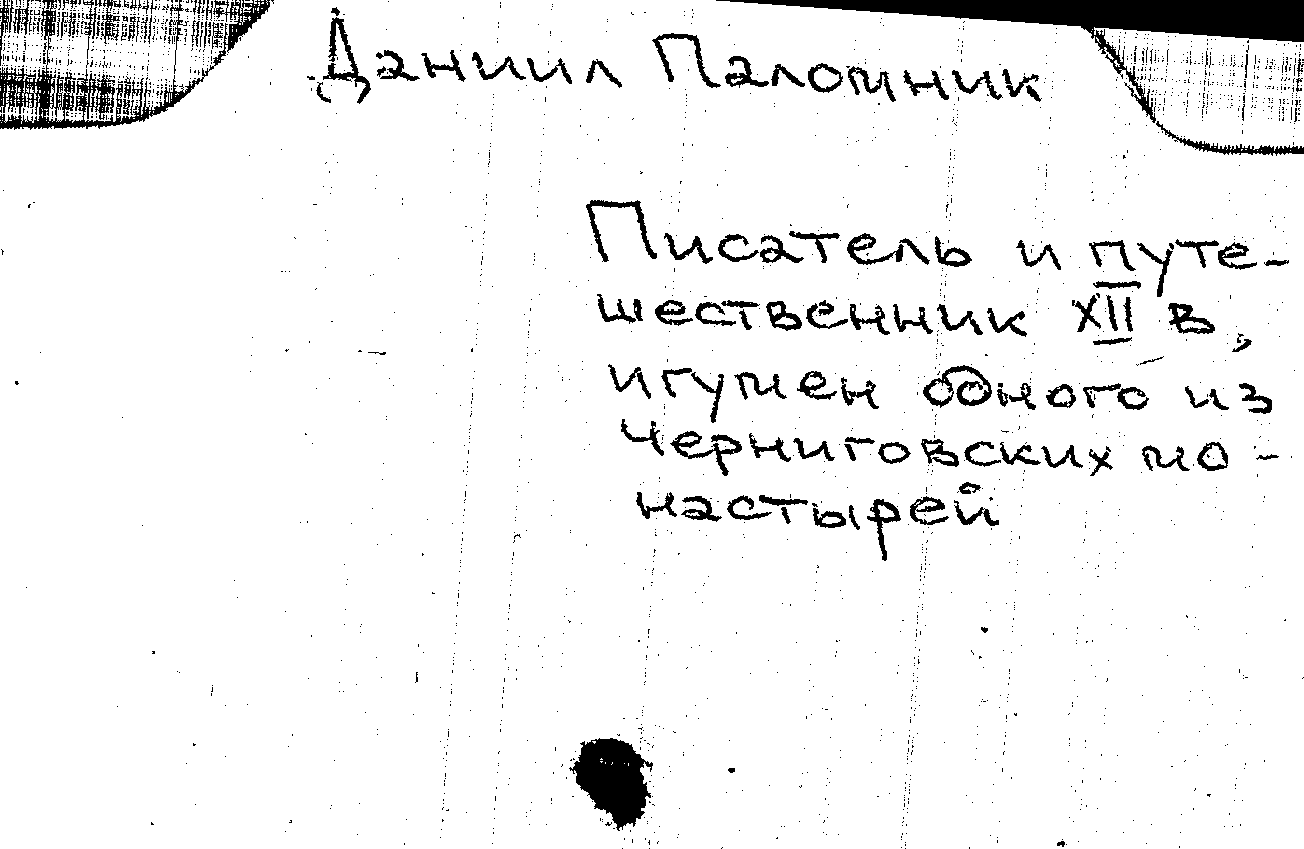 Даниил Паломник
Писатель и путе-
шественник XII в,
игумен одного из
Черниговских мо-
настырей